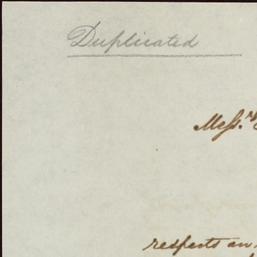 Duplicated
Mess.rs
respects an